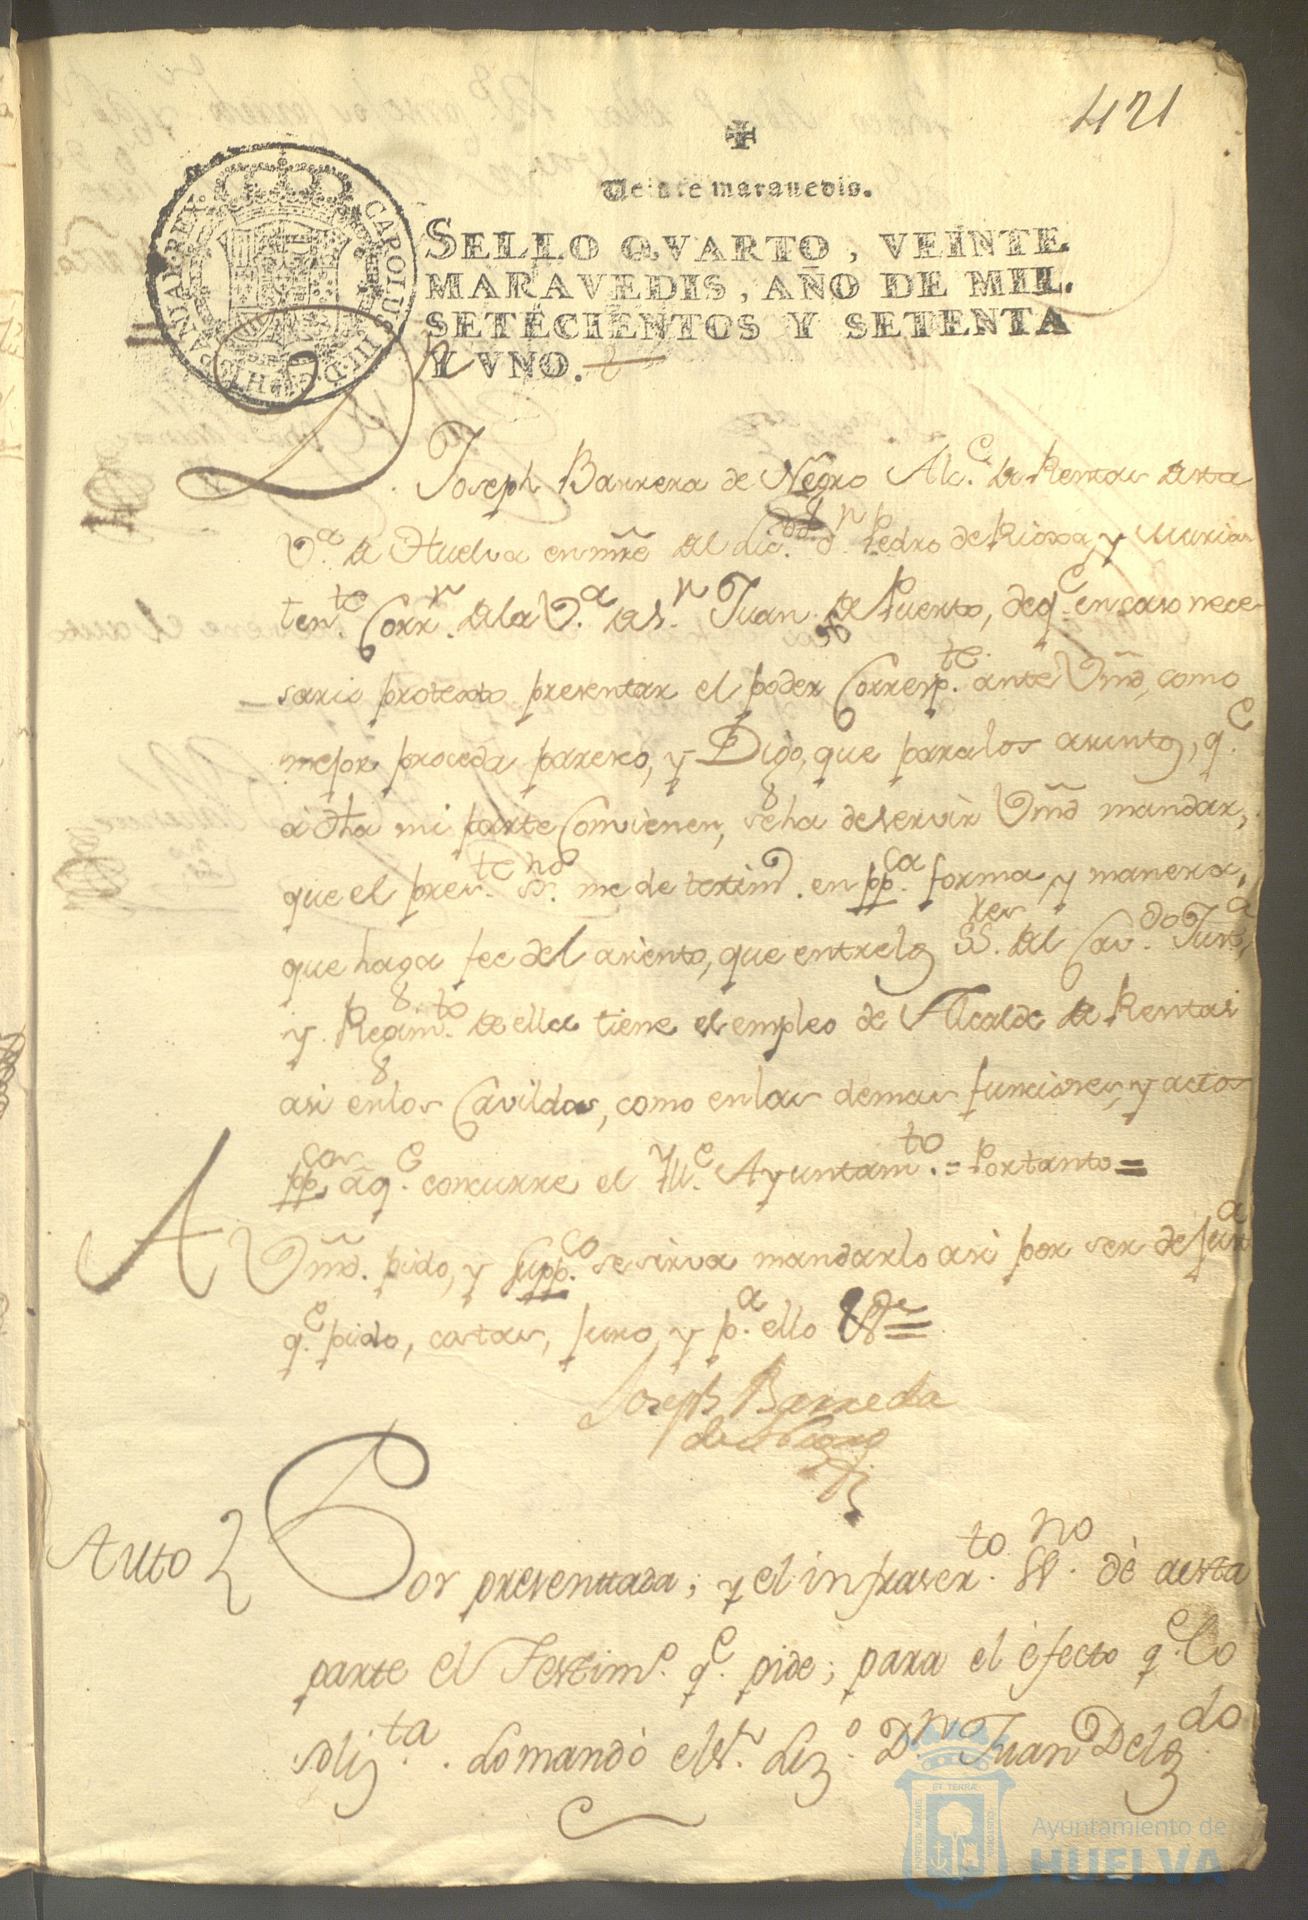 421
Veinte maravedis.
SELLO QVARTO, VEINTE
MARAVEDIS, AÑO DE MIL
SETECIENTOS Y SETENTA
Y VNO.
CAROLUS III D.G. HISPANIAR. REX
Dn. Joseph Barrera de Negro Alce. de Rentas desta
Va. de Huelva en nre. del dic. dn. Pedro de Rioxa, y Muria
tente. Corrr. de la Va. de Sn. Juan del Puerto, de qe. en caso nece-
sario protexto presentar el poder Correspte. ante Vmd, como
mejor proceda parezco, y Digo, que para los asuntos, qe.
a dha mi parte Convienen, se ha de servir Vmd mandar,
que el preste. Sno. me de testimo. en ppca. forma, y manera,
que haga fee del asiento, que entre los SSres. del Cavdo. Justa,
y Regimto. de ella tiene el empleo de Alcalde de Rentas
asi en los Cavildos, como en las demas funciones, y actos
ppcos. a qe. concurre el Ille. Ayuntamto. = Por tanto =
A Vmd. pido, y suppco. se sirva mandarlo asi por ser de Justa
qe. pido, costas, juro, y pa. ello &
Joseph Barreda
de Negro
Auto
Por presentada; y el infrascrto. SSno. dè a esta
parte el Testimo. qe. pide; para el éfecto qe. lo
solizta. lo mandó el Sr. Lizo. Dn Juan Delgdo
Ayuntamiento de
HUELVA